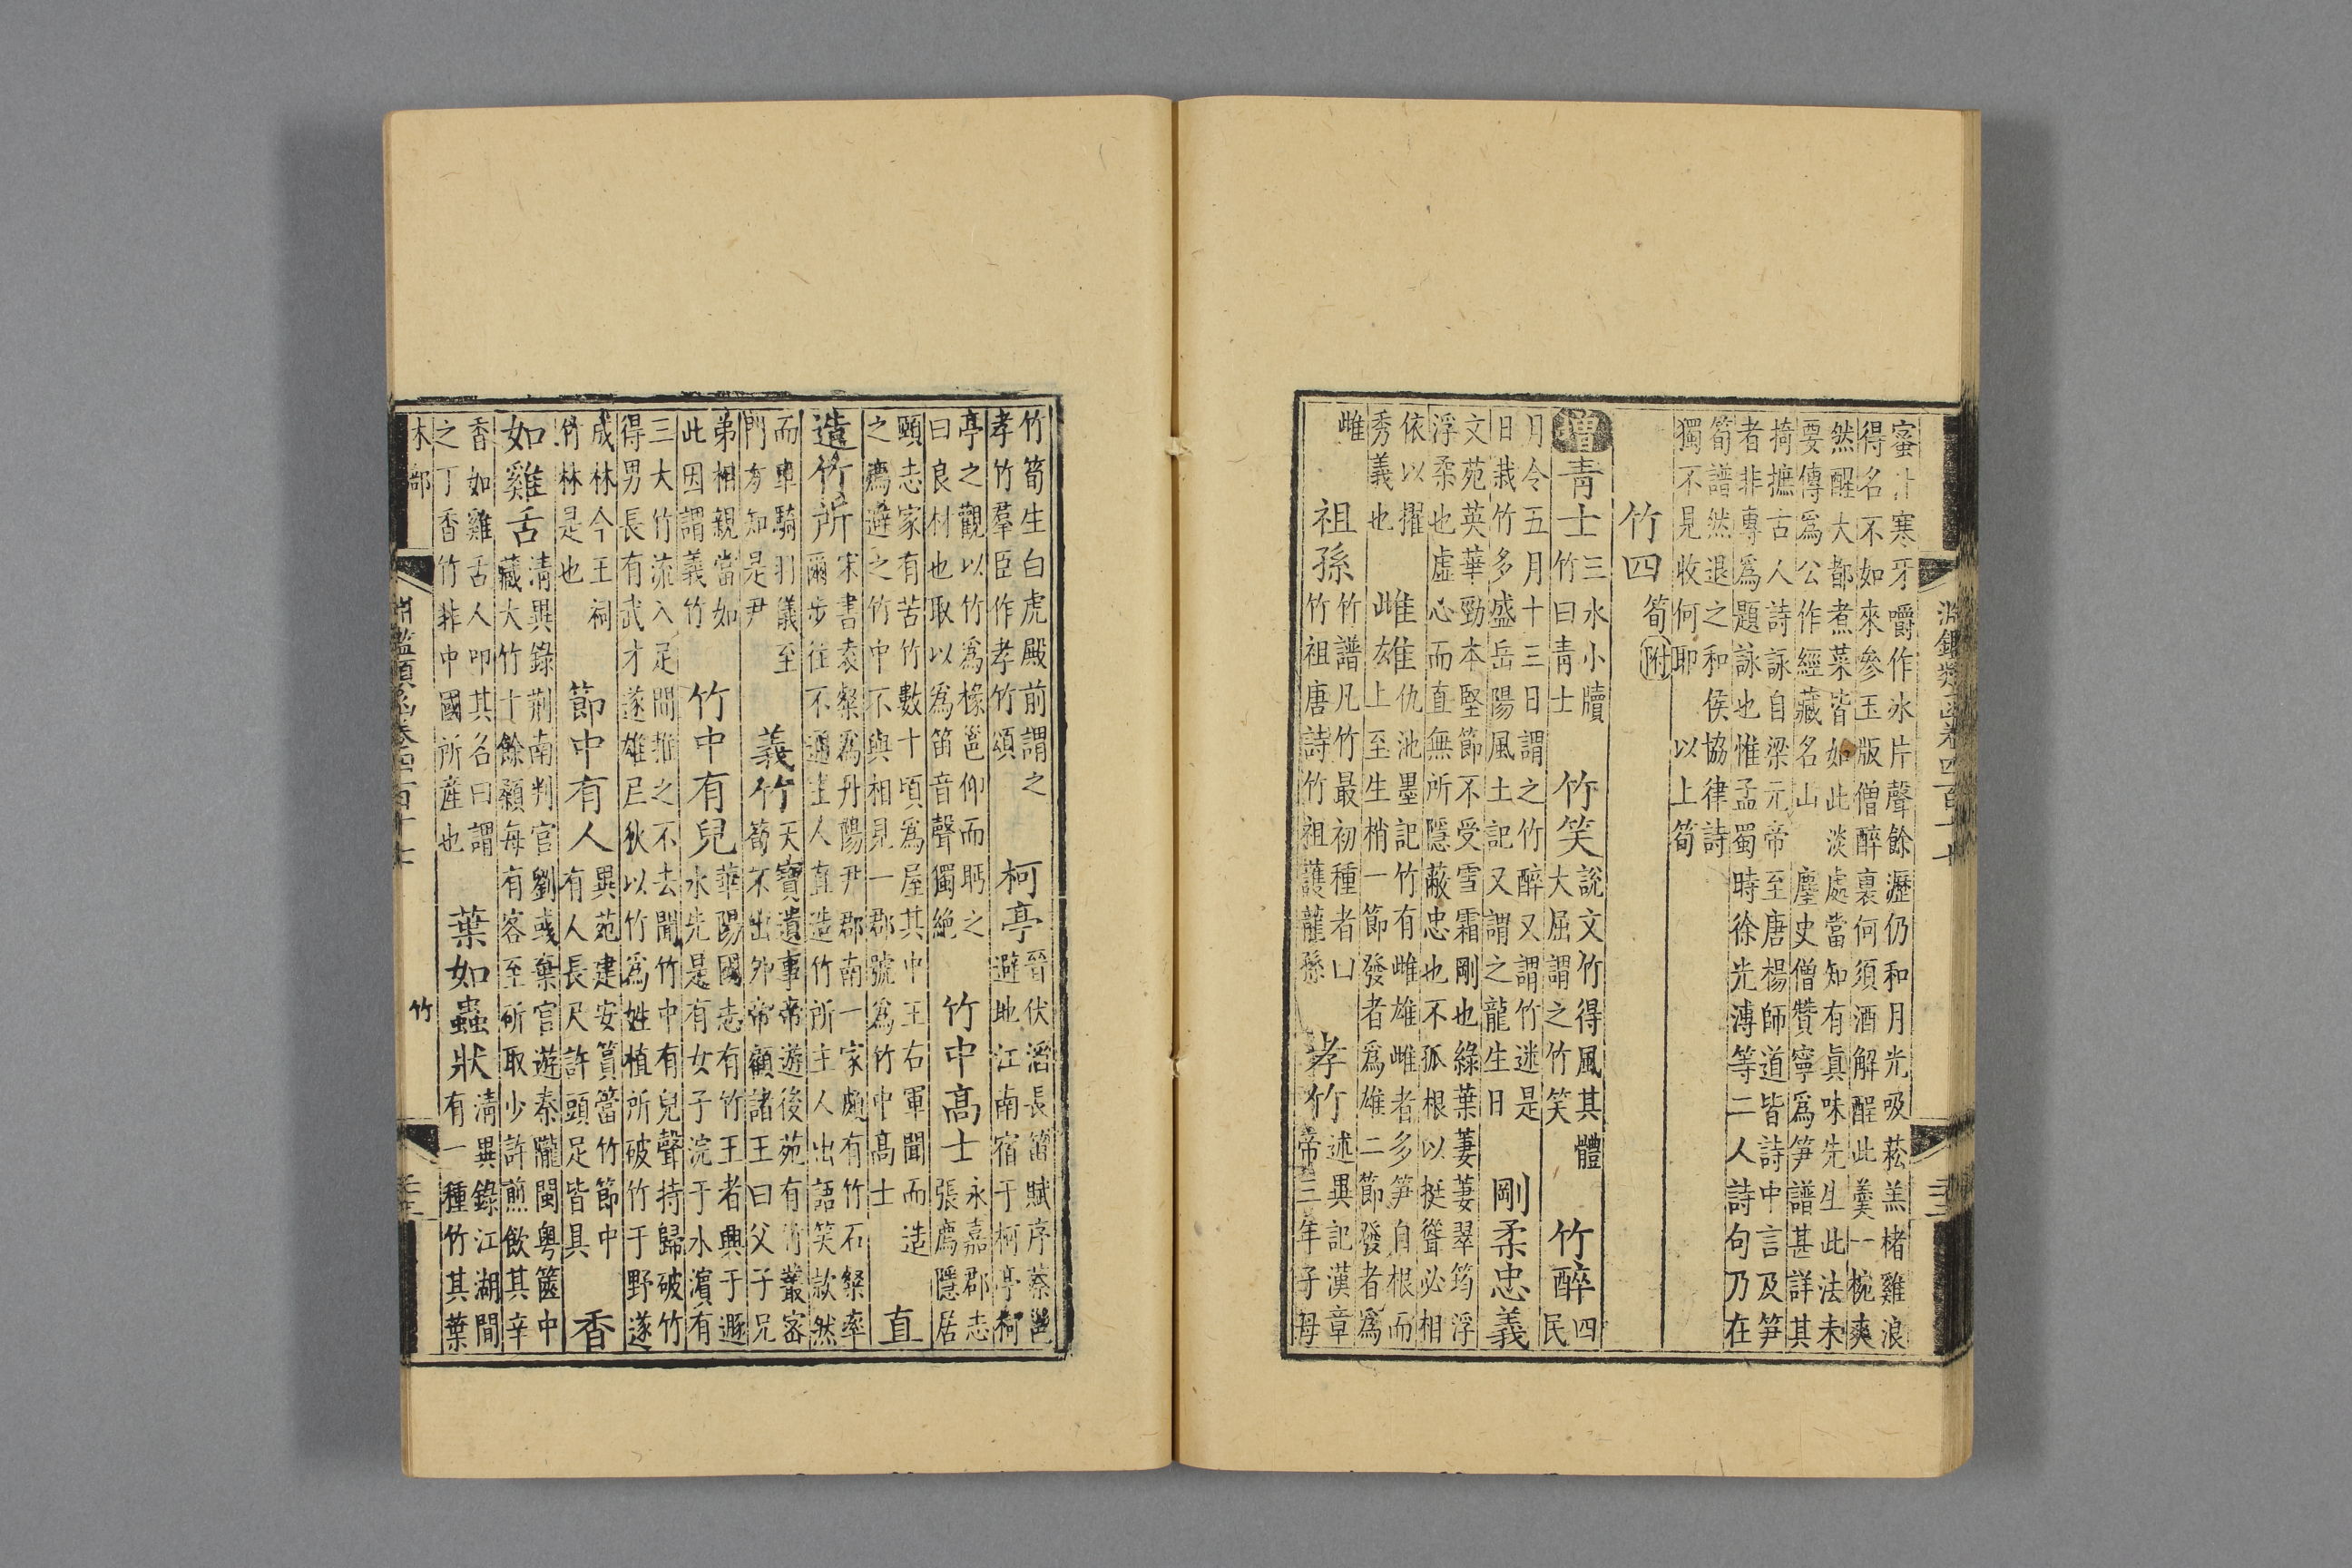 蜜汁寒牙嚼作冰片聲餘瀝仍和月光吸菘羔楮雞浪
得名不如來參玉版僧醉裏何須酒解酲此羹一椀爽
然醒大都煮菜皆如此淡處當知有眞味先生此法未
要傳爲公作經藏名山 塵史僧贊寧爲笋譜甚詳其
掎摭古人詩詠自梁元帝至唐楊師道皆詩中言及笋
者非專爲題詠也惟孟蜀時徐光溥等二人詩句乃在
筍譜然退之和侯協律詩
獨不見收何耶 以上筍
竹四 筍附
增青士 三水小牘
竹曰青士 竹笑 說文竹得風其體
大屈謂之竹笑 竹醉 四民
月令五月十三日謂之竹醉又謂竹迷是
日栽竹多盛岳陽風土記又謂之龍生日 剛柔忠義
文苑英華勁本堅節不受雪霜剛也綠葉萋萋翠筠浮
浮柔也虛心而直無所隱蔽忠也不孤根以挺聳必相
依以擢
秀義也 雌雄 仇池墨記竹有雌雄雌者多笋自根而
上至生梢一節發者爲雄二節發者爲
雌 祖孫 竹譜凡竹最初種者曰
竹祖唐詩竹祖護龍孫 孝竹 述異記漢章
帝三年子母
竹筍生白虎殿前謂之
孝竹羣臣作孝竹頌 柯亭 晉伏滔長笛賦序蔡邕
避地江南宿于柯亭柯
亭之觀以竹爲椽邕仰而眄之
曰良材也取以爲笛音聲獨絶 竹中高士 永嘉郡志
張廌隱居
頤志家有苦竹數十頃爲屋其中王右軍聞而造
之廌避之竹中不與相見一郡號爲竹中高士 直
造竹所 宋書袁粲爲丹陽尹郡南一家頗有竹石粲率
爾步往不通主人直造竹所主人出語笑款然
而車騎羽儀至
門方知是尹 義竹 天寶遺事帝遊後苑有竹叢密
筍不出外帝顧諸王曰父子兄
弟相親當如
此因謂義竹 竹中有兒 華陽國志有竹王者興于遯
水先是有女子浣于水濵有
三大竹流入足間推之不去聞竹中有兒聲持歸破竹
得男長有武才遂雄夷狄以竹爲姓植所破竹于野遂
成林今王祠
竹林是也 節中有人 異苑建安篔簹竹節中
有人長尺許頭足皆具 香
如雞舌 清異錄荆南判官劉彧棄官遊秦隴閩粤篋中
藏大竹十餘顆每有客至斫取少許煎飲其辛
香如雞舌人叩其名曰謂
之丁香竹非中國所産也 葉如蟲狀 清異錄江湖間
有一種竹其葉
木部 竹
淵鑑類函卷四百十七
淵鑑類函卷四百十七